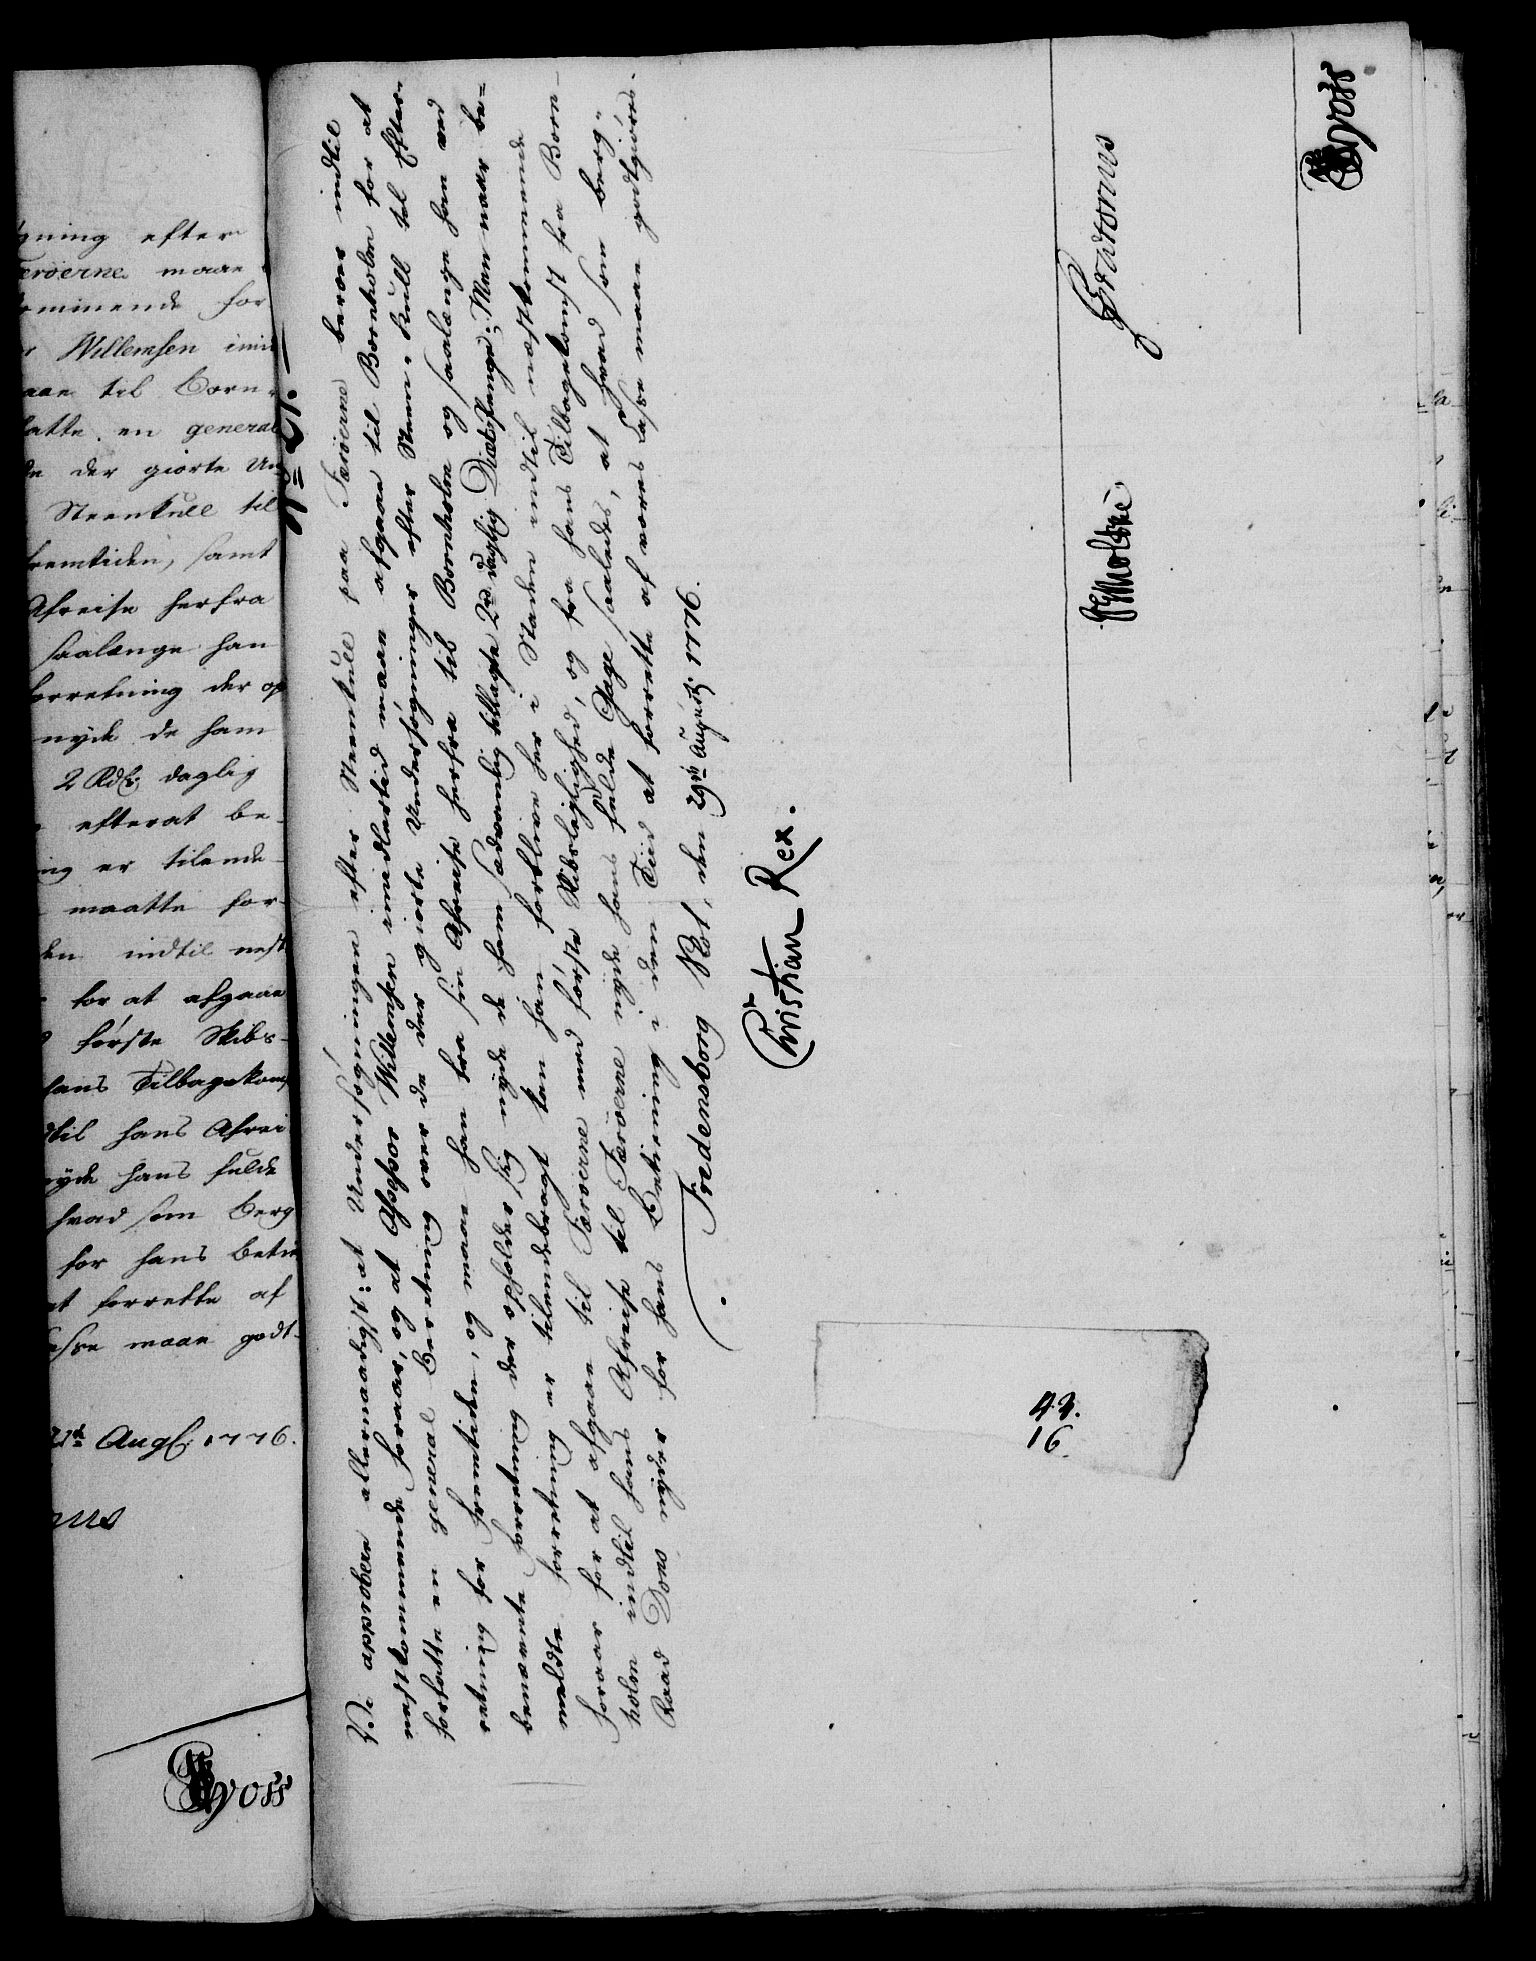 gning efter
erøerne maae
ommende for
r Willemsen imid
aae til Born-
fatte en general
de der giorte Un
Steenkull til
fremtiden, samt
Afreise herfra
saalænge han
forretning der op
nyde de ham
2 Rdlr daglig
efterat be-
ing er tilende-
maatte for-
den indtil nest
for at afgaae
første Skibs-
hans Tilbagekomst
dtil hans Afrei
nyde hans fulde
hvad som Berg
for hans Betie
at forrette af
Casse maae godt-
21de Augst: 1776.
Thyoss
No 21.
Vi approbere allernaadigst: at Undersøgningen efter Steenkull paa Færøerne beroer indtil
nestkommende foraar, og at Assessor Willemsen imidlertid maae afgaae til Bornholm for at
forfatte en general Beretning over de der giorte Undersøgninger efter Steen-Kull til Efter-
retning for fremtiden, og maae han fra sin Afreise herfra til Bornholm og saalænge han ved
benævnte forretning der opholder sig nyde de ham sædvanlig tillagte 2rd daglig Diæt-Penge; Men naar be-
meldte forretning er tilendebragt kan han forblive her i Staden indtil næstkommende
foraar for at afgaae til Færøerne med første Skibsleilighed, og fra hans Tilbagekomst fra Born-
holm indtil hans Afreise til Færøerne nyde hans fulde Gage saaledes, at hvad som Berg-
Raad Dons nyder for hans Betiening i den Tiid at forrette af vores Casse maae godtgiøres.
Fredensborg Slot, den 29de Augusti 1776.
Christian Rex.
GEMoltke
Thyoss
42.
16.